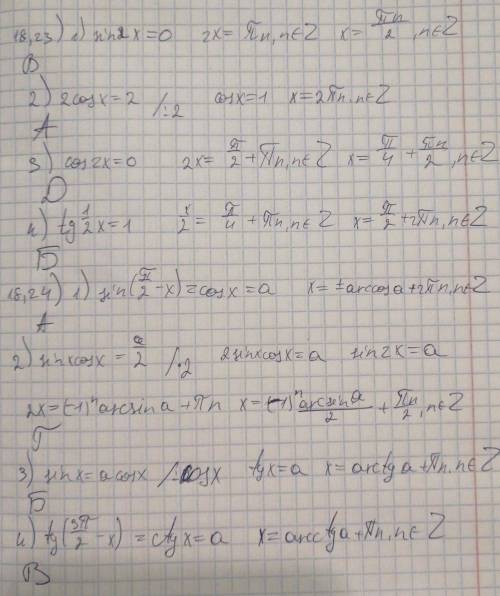 18,23) 1) sin2x=0 2x= πn, n∈Z x= πn/2, n∈Z
В
2) 2cosx=2 /:2 cosx=1 x=2πn, n∈Z
А
3) cos2x=0 2x= π/2+πn, n∈Z x= π/4+πn/2, n∈Z
Д
4) tg 1/2 x=1 x/2= π/4+πn, n∈Z x= π/2+2πn, n∈Z
Б
18,24) 1) sin(π/2-x)=cosx=a x= ±arccosa+2πn, n∈Z
А
2) sinxcosx= a/2 /·2 2sinxcosx=a sin2x=a
2x=(-1)ⁿarcsina+πn x=(-1)ⁿ arcsina/2 + πn/2, n∈Z
Г
3) sinx=acosx /:cosx tgx=a x=arctga+πn, n∈Z
Б
4) tg(3π/2-x)=ctgx=a x=arcctga+πn, n∈Z
В